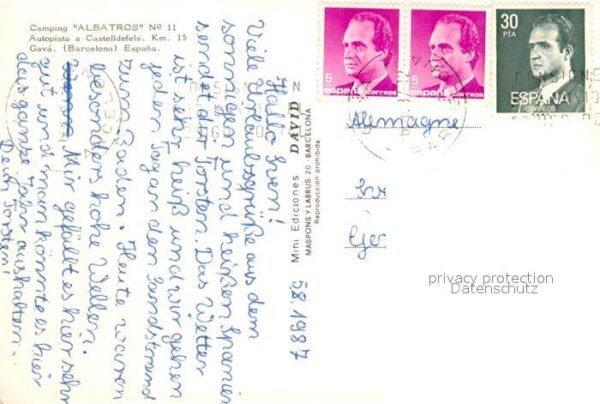 Camping "ALBATROS" Nº 11
Autopista a Castelldefels. Km. 15
Gavá. (Barcelona) España.
5.8.1987
Hallo Sven!
Viele Urlaubsgrüße aus dem
sonnigen und heißen Spanien
sendet dir Torsten. Das Wetter
ist sehr heiß und wir gehen
jeden Tag an den Sandstrand
zum Baden. Heute waren
besonders hohe Wellen.
Mir gefällt es hier sehr
gut und man könnte es hier
das ganze Jahr aushalten.
Dein Torsten!
Mini Ediciones DAVID
MASPONS Y LABRUS 20 - BARCELONA
Reproducción prohibida
5
españa correos
5
españa correos
30
PTA
ESPAÑA
CORREOS
Alemagne
privacy protection
Datenschutz